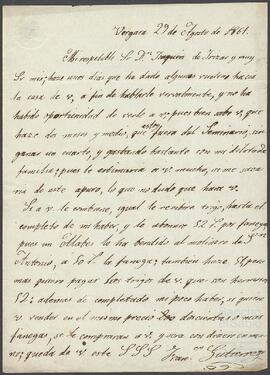 Vergara 29 de Agosto de 1861.
Mi respetable Sr. Dn. Joaquin de Irizar y muy
Sr. mio; hace unos dias que ha dado algunas vueltas hacia
la casa de V. a fin de hablarle verbalmente, y no
ha habido oportunidad de verle a V.; pues bien sabe V. que
hace dos meses y medio, que estoy fuera del Seminario, sin
ganar un cuarto, y gastando bastante con mi dilatada
familia; pues le estimaria a V. mucho, se me sacara
de este apuro, lo que no dudo que hara V.
Si a V. le conviene, igual le recibire trigo, hasta el
completo de mi haber, y le abonare 52 r. por fanega,
pues un Alabes la ha bendido al molinero de Sn.
Antonio, a 50 r. la fanega; tambien hace
mas quiere pagar los trigos de V. que son hermosos
52; ademas de completado mi poco haber, si quiere
V. vender en el mismo precio, los doscientas o mas
fanegas, se le compraran a V. y sera con dinero en mano;
queda de V. este S.S.S. Gutierrez